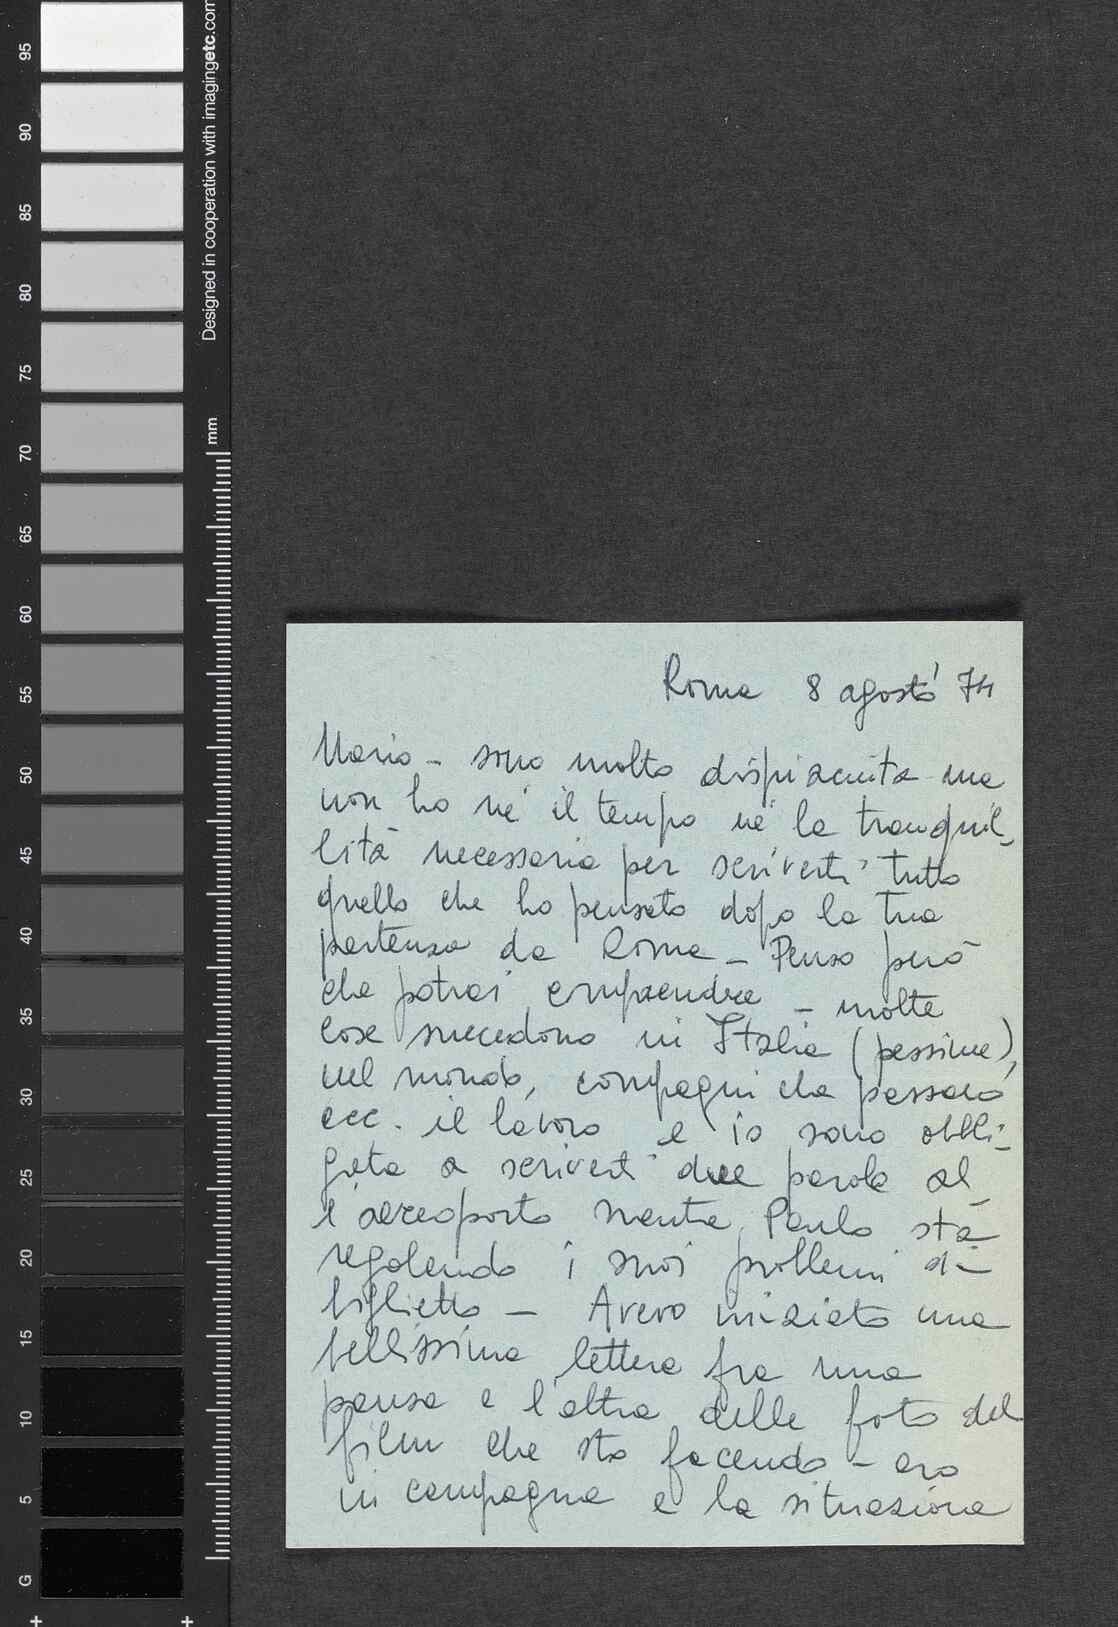 Designed in cooperation with imagingetc.com
mm
95
90
85
80
75
70
65
60
55
50
45
40
35
30
25
20
15
10
5
G
Roma 8 agosto '74
Mario - sono molto dispiaciuta ma
non ho nè il tempo nè la tranquil-
lità necessaria per scriverti tutto
quello che ho pensato dopo la tua
partenza da Roma - Penso però
che potrai comprendere - molte
cose succedono in Italia (pessime),
nel mondo, compagni che passano
ecc. il lavoro e io sono obbli-
gata a scriverti due parole al-
l'aereoporto mentre Paulo stà
regolando i suoi problemi di
biglietto - Avevo iniziato una
bellissima lettera fra una
pausa e l'altra delle foto del
film che sto facendo - ero
in campagna e la situazione